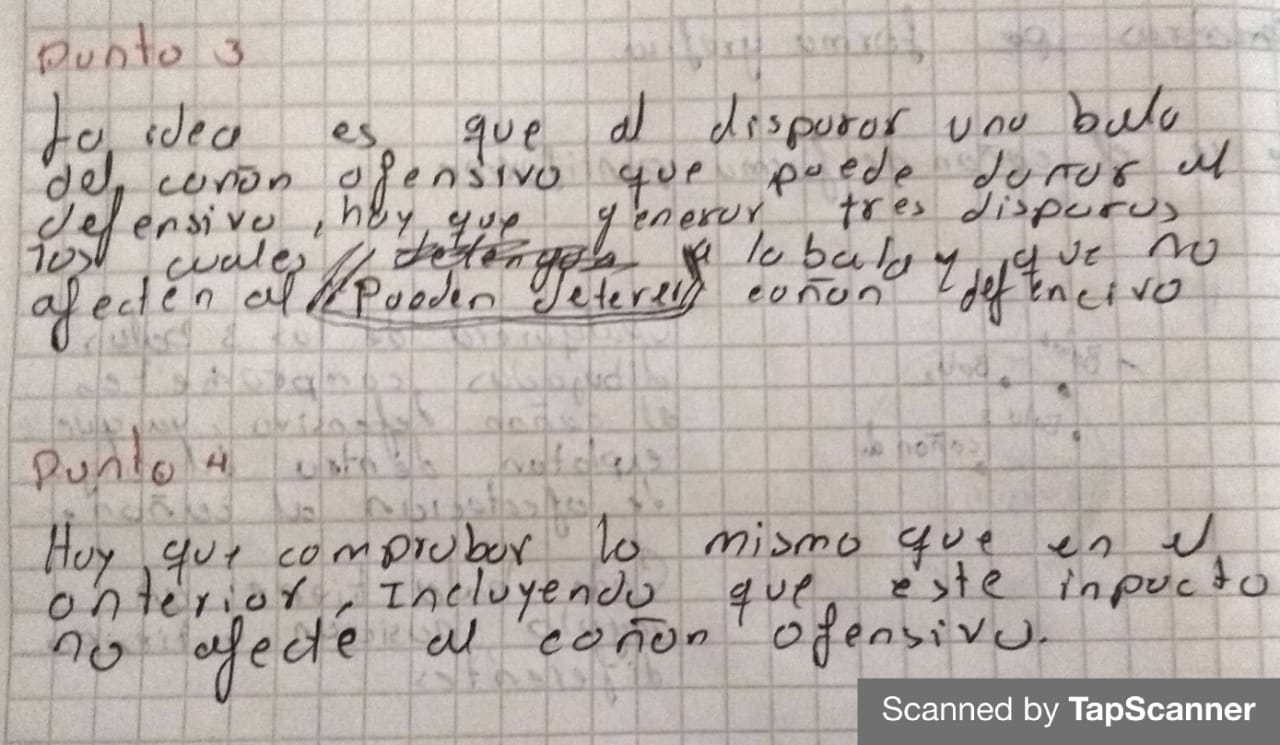 Punto 3
La idea es que al disparar una bala
del cañon ofensivo que puede dañar al
defensivo, hay que generar tres disparos
los cuales // detengan la bala y que no
afecten al // pueden detener // cañon defencivo
Punto 4
Hay que comprobar lo mismo que en el
anterior, Incluyendo que este inpacto
no afecte al cañon ofensivo.
Scanned by TapScanner